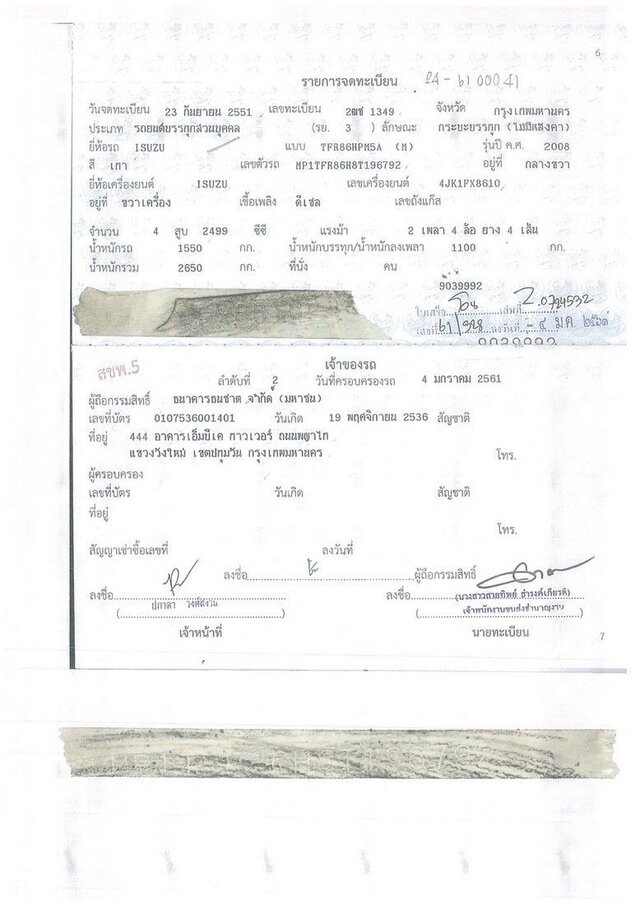 6
รายการจดทะเบียน
วันจดทะเบียน 23 กันยายน 2551 เลขทะเบียน 2ฒช 1349 จังหวัด กรุงเทพมหานคร
ประเภท รถยนต์บรรทุกส่วนบุคคล (รย. 3 ) ลักษณะ กระบะบรรทุก (ไม่มีหลังคา)
ยี่ห้อรถ ISUZU แบบ TFR86HPM5A (M) รุ่นปี ค.ศ. 2008
สี เทา เลขตัวรถ MP1TFR86H8T196792 อยู่ที่ กลางขวา
ยี่ห้อเครื่องยนต์ ISUZU เลขเครื่องยนต์ 4JK1FX8610
อยู่ที่ ขวาเครื่อง เชื้อเพลิง ดีเซล เลขถังแก๊ส
จำนวน 4 สูบ 2499 ซีซี แรงม้า 2 เพลา 4 ล้อ ยาง 4 เส้น
น้ำหนักรถ 1550 กก. น้ำหนักบรรทุก/น้ำหนักลงเพลา 1100 กก.
น้ำหนักรวม 2650 กก. ที่นั่ง คน
9039992
ใบเสร็จ เล่มที่
เลขที่ 61/ ลงวันที่ - ๔ ม.ค. ๒๕๖๑
9039992
สขพ.5
เจ้าของรถ
ลำดับที่ 2 วันที่ครอบครองรถ 4 มกราคม 2561
ผู้ถือกรรมสิทธิ์ ธนาคารธนชาต จำกัด (มหาชน)
เลขที่บัตร 0107536001401 วันเกิด 19 พฤศจิกายน 2536 สัญชาติ
ที่อยู่ 444 อาคารเอ็มบีเค ทาวเวอร์ ถนนพญาไท
แขวงวังใหม่ เขตปทุมวัน กรุงเทพมหานคร โทร.
ผู้ครอบครอง
เลขที่บัตร วันเกิด สัญชาติ
ที่อยู่
โทร.
สัญญาเช่าซื้อเลขที่ ลงวันที่
ลงชื่อ ผู้ถือกรรมสิทธิ์
ลงชื่อ ลงชื่อ
เจ้าหน้าที่ นายทะเบียน
7